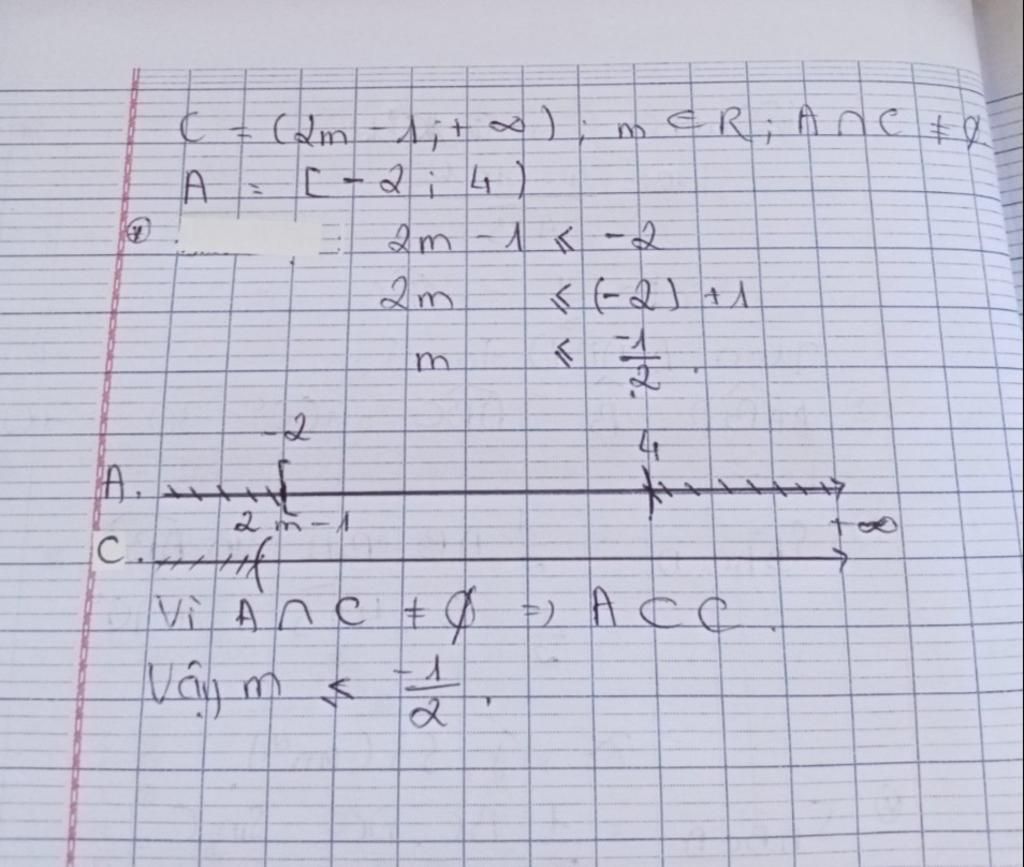 C = (2m - 1; + ∞); m ∈ R; A ∩ C ≠ ∅
A = [- 2; 4)
* 2m - 1 ≤ - 2
2m ≤ (- 2) + 1
m ≤ -1/2.
-2 4
A.
2m - 1 + ∞
C.
Vì A ∩ C ≠ ∅ => A ⊂ C.
Vậy m ≤ -1/2.